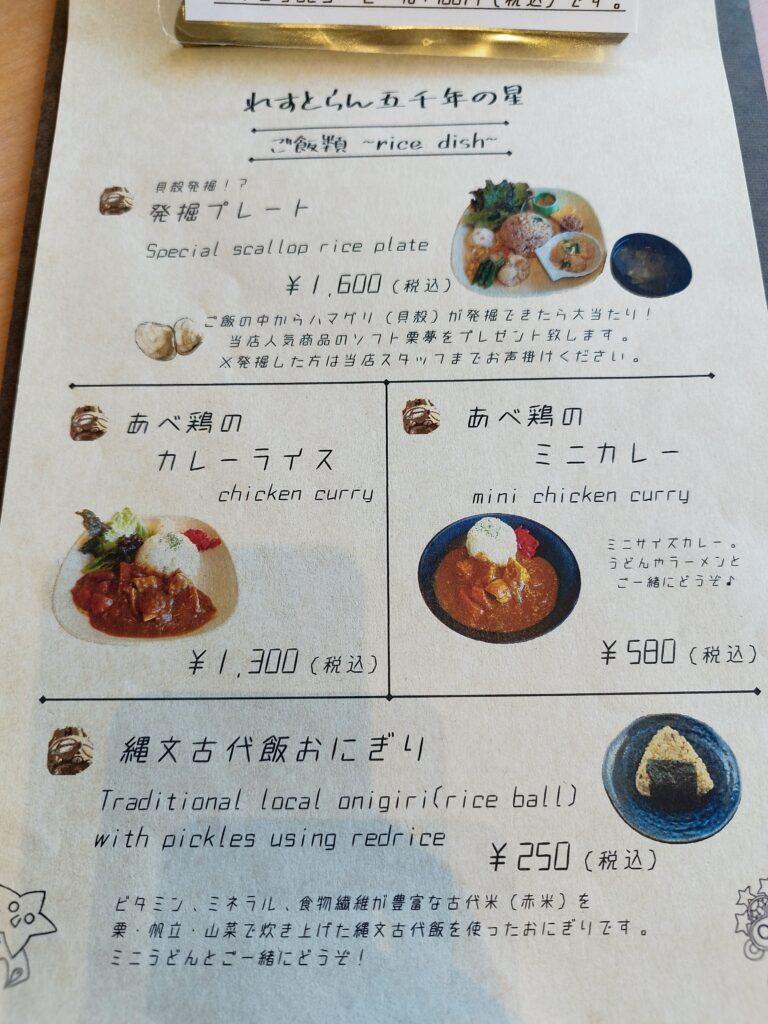 (税込)です。
れすとらん五千年の星
ご飯類 ~rice dish~
貝殻発掘!?
発掘プレート
Special scallop rice plate
¥1,600(税込)
ご飯の中からハマグリ(貝殻)が発掘できたら大当たり!
当店人気商品のソフト栗夢をプレゼント致します。
※発掘した方は当店スタッフまでお声掛けください。
あべ鶏の
カレーライス
chicken curry
¥1,300(税込)
あべ鶏の
ミニカレー
mini chicken curry
ミニサイズカレー。
うどんやラーメンと
ご一緒にどうぞ♪
¥580(税込)
縄文古代飯おにぎり
Traditional local onigiri(rice ball)
with pickles using redrice
¥250(税込)
ビタミン、ミネラル、食物繊維が豊富な古代米(赤米)を
栗・帆立・山菜で炊き上げた縄文古代飯を使ったおにぎりです。
ミニうどんとご一緒にどうぞ!